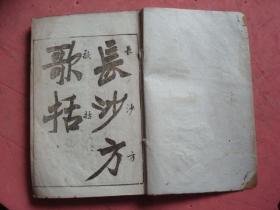 長沙方
長沙方
歌括
歌括